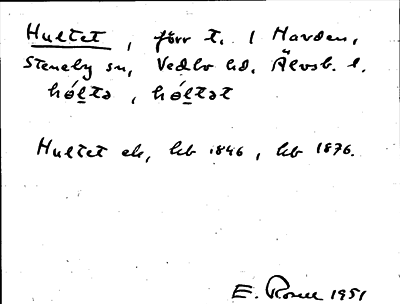 Hultet, förr t. 1 Harden,
Steneby sn, Vedbo hd, Älvsb. l.
hóltə, hóltət
Hultet ek, hb 1846, hb 1876.
E. Rosell 1951